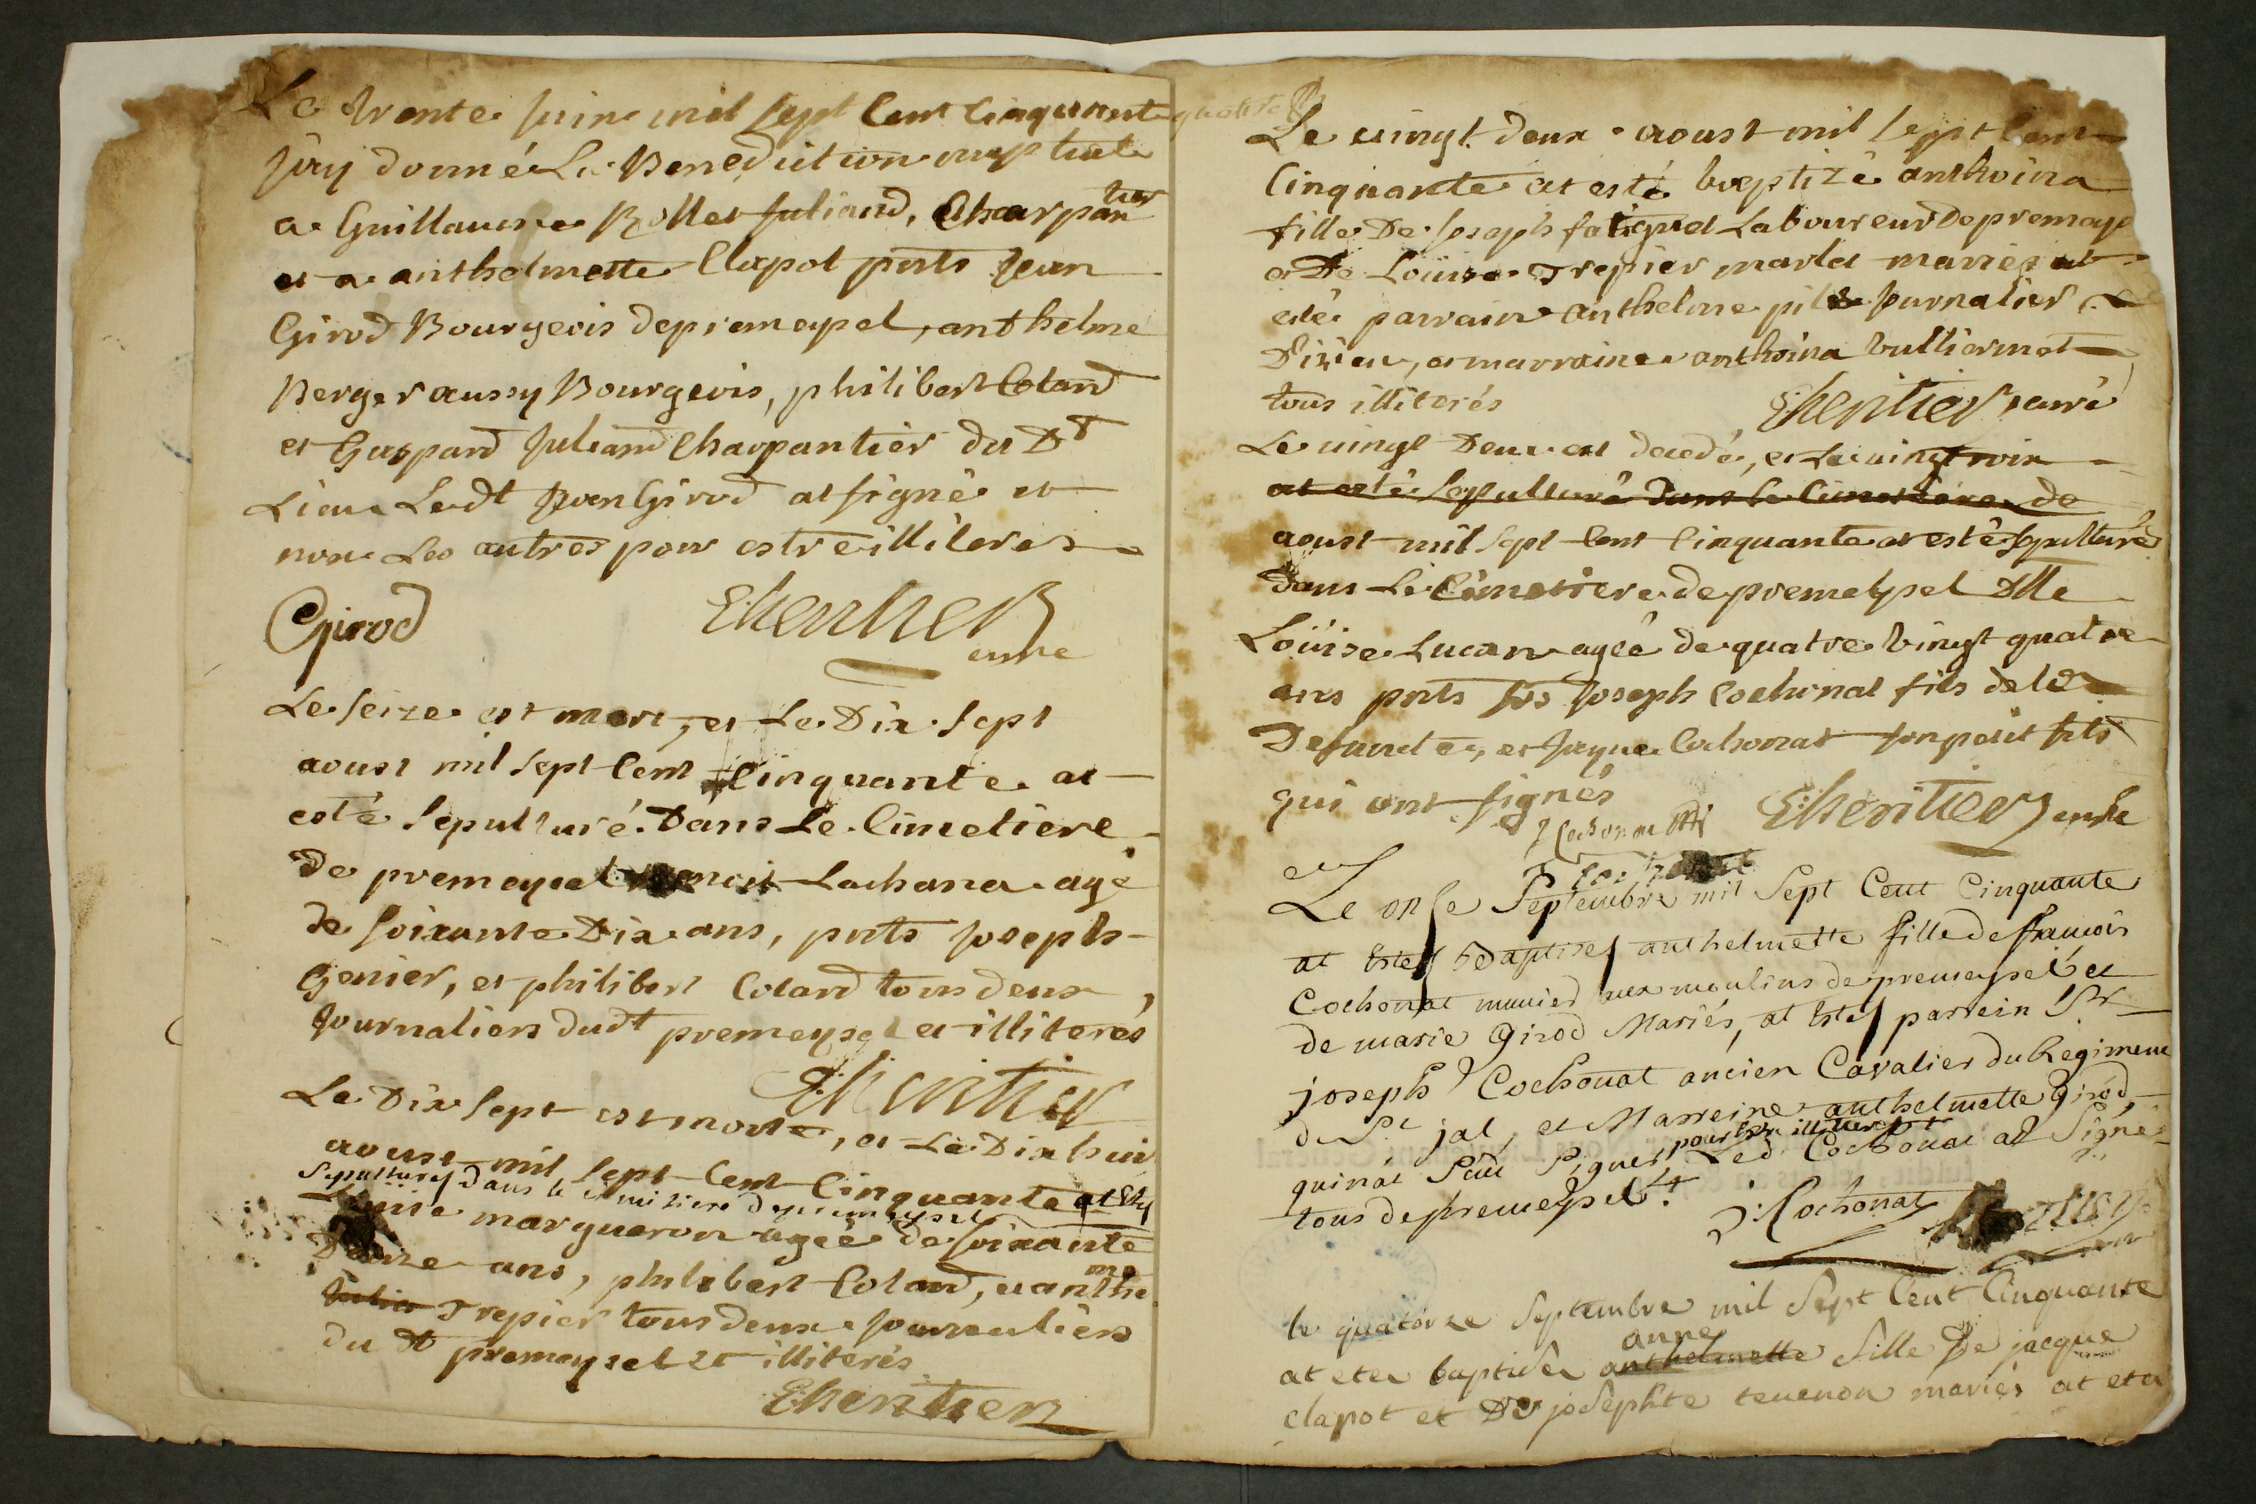 Le trente juin mil sept cent cinquante
j'ay donné La Benediction nuptiale
a Guillaume Rollet Juliand, Charpantier
et a anthelmette Clapot pnts Jean
Girod Bourgeois de premeysel, anthelme
Berger aussy Bourgeois, philibert Coland
et Gaspard Juliand Charpantier du Dt
Lieu Ledt Jean Girod at signé et
non Les autres pour estre illiteres
Girod Lheritier
curé
Le seize est mort, et Le Dix sept
aoust mil sept cent cinquante at
esté sepulturé Dans Le Cimetiere
de premeysel Lachana agé
de soixante Dix ans, pnts joseph
Genier, et philibert Coland tous deux
journaliers dudt premeysel et illiterés
Lheritier
Le Dix sept est morte, et Le Dix huit
aoust mil sept cent cinquante at esté
sepulturé dans le cimitiere de premeysel
Louise margueron agée de soixante
Douze ans, philibert Coland, et anthelme
Trepier tous deux journaliers
du dt premeysel et illiterés
Lheritier
Le vingt deux aoust mil sept cent
Cinquante at esté baptizé anthoina
fille De joseph Laboureur de premeysel
et De Loüise Trepier mariés at
esté parrain anthelme pil journalier
D'izieu, et marraine anthoina vulliermet
tous illiterés Lheritier curé
Le vingt Deux est decedé, et Le vingt trois
at esté sepulturé dans Le Cimetiere de
aoust mil sept cent cinquante at esté sepulturé
dans Le Cimetiere de premeysel Dlle
Loüise Lucan agée de quatre vingt quatre
ans pnts srs Joseph Cochonat fils de la
Defuncte, et Jaque Cochonat son petit fils
qui ont signés
J Cochonat Lheritier curé
Le onse Septembre mil Sept Cent Cinquante
at esté Baptisé anthelmette fille de francois
Cochonat munier aux moulins de premeysel et
de marie Girod Mariés, at esté parrein Sr
joseph Cochonat ancien Cavalier du Regiment
de St jal, et Marreine anthelmette Girod
qui n'at Seut Signer pour estre illitere Led. Cochonat at Signé
tous de premeysel.
J. Cochonat
le quatorze Septembre mil Sept Cent Cinquante
at ete baptisée anthelmette anne fille De jacque
clapot et De josephte tevenon mariés at ete